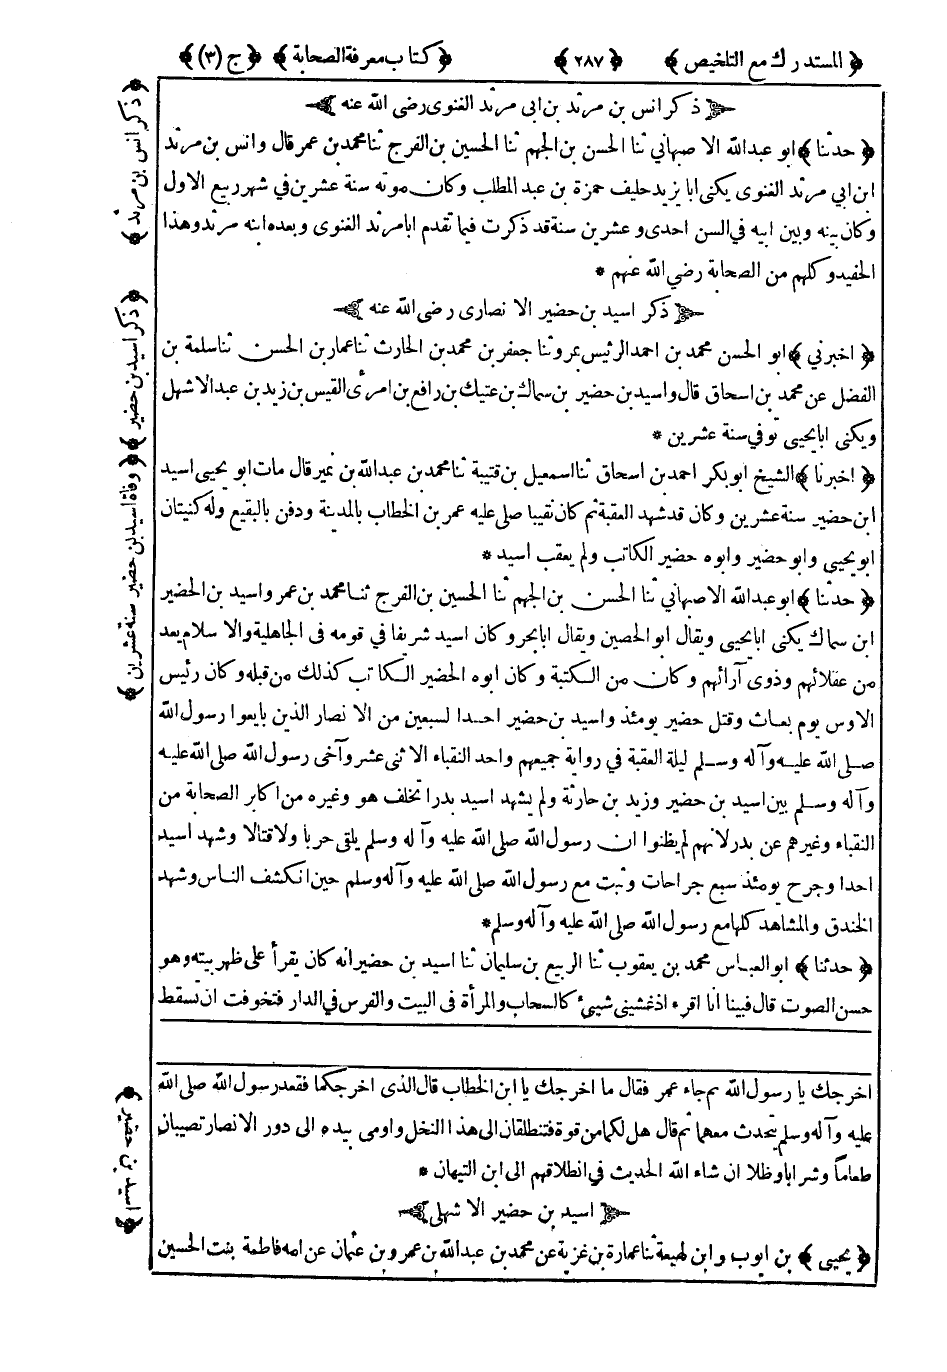 ﴿ المستدرك مع التلخيص ﴾ ﴿ ٢٨٧ ﴾ ﴿ كتاب معرفة الصحابة ﴾ ﴿ ج (٣) ﴾
ذكر انس بن مرثد بن ابى مرثد الغنوى رضى الله عنه
﴿ حدثنا ﴾ ابو عبدالله الاصبهاني ثنا الحسن بن الجهم ثنا الحسين بن الفرج ثنا محمد بن عمر قال وانس بن مرثد
ابن ابي مرثد الغنوى يكنى ابا يزيد حليف حمزة بن عبد المطلب وكان موته سنة عشرين في شهر ربيع الاول
وكان بينه وبين ابيه في السن احدى وعشرين سنة قد ذكرت فيما تقدم ابا مرثد الغنوى وبعده ابنه مرثد وهذا
الحفيد وكلهم من الصحابة رضي الله عنهم *
ذكر اسيد بن حضير الانصارى رضى الله عنه
﴿ اخبرني ﴾ ابو الحسن محمد بن احمد الرئيس بمرو ثنا جعفر بن محمد بن الحارث ثنا عمار بن الحسن ثنا سلمة بن
الفضل عن محمد بن اسحاق قال واسيد بن حضير بن سماك بن عتيك بن رافع بن امرئ القيس بن زيد بن عبد الاشهل
ويكنى ابا يحيى توفي سنة عشرين *
﴿ اخبرنا ﴾ الشيخ ابو بكر احمد بن اسحاق ثنا اسمعيل بن قتيبة ثنا محمد بن عبدالله بن نمير قال مات ابو يحيى اسيد
ابن حضير سنة عشرين وكان قد شهد العقبة ثم كان نقيبا صلى عليه عمر بن الخطاب بالمدينة ودفن بالبقيع وله كنيتان
ابو يحيى وابو حضير وابوه حضير الكاتب ولم يعقب اسيد *
﴿ حدثنا ﴾ ابو عبدالله الاصبهاني ثنا الحسن بن الجهم ثنا الحسين بن الفرج ثنا محمد بن عمر واسيد بن الحضير
ابن سماك يكنى ابا يحيى ويقال ابو الحصين ويقال ابا بحر وكان اسيد شريفا في قومه فى الجاهلية والاسلام يعد
من عقلائهم وذوى آرائهم وكان من الكتبة وكان ابوه الحضير الكاتب كذلك من قبله وكان رئيس
الاوس يوم بعاث وقتل حضير يومئذ واسيد بن حضير احد السبعين من الانصار الذين بايعوا رسول الله
صلى الله عليه وآله وسلم ليلة العقبة في رواية جميعهم واحد النقباء الاثنى عشر وآخى رسول الله صلى الله عليه
وآله وسلم بين اسيد بن حضير وزيد بن حارثة ولم يشهد اسيد بدرا تخلف هو وغيره من اكابر الصحابة من
النقباء وغيرهم عن بدر لانهم لم يظنوا ان رسول الله صلى الله عليه وآله وسلم يلقى حربا ولا قتالا وشهد اسيد
احدا وجرح يومئذ سبع جراحات وثبت مع رسول الله صلى الله عليه وآله وسلم حين انكشف الناس وشهد
الخندق والمشاهد كلها مع رسول الله صلى الله عليه وآله وسلم *
﴿ حدثنا ﴾ ابو العباس محمد بن يعقوب ثنا الربيع بن سليمان ثنا اسيد بن حضير انه كان يقرأ على ظهر بيته وهو
حسن الصوت قال فبينا انا اقرء اذ غشيني شيئ كالسحاب والمرأة فى البيت والفرس في الدار فتخوفت ان تسقط
اخرجك يا رسول الله ثم جاء عمر فقال ما اخرجك يا ابن الخطاب قال الذى اخرجكما فقعد رسول الله صلى الله
عليه وآله وسلم يتحدث معهما ثم قال هل لكما من قوة فتنطلقان الى هذا النخل واومى بيده الى دور الانصار تصيبان
طعاما وشرابا وظلا ان شاء الله الحديث في انطلاقهم الى ابن التيهان *
اسيد بن حضير الاشهلى
﴿ يحيى ﴾ بن ايوب وابن لهيعة ثنا عمارة بن غزية عن محمد بن عبدالله بن عمرو بن عثمان عن امه فاطمة بنت الحسين
﴿ ذكر انس بن مرثد ﴾
﴿ ذكر اسيد بن حضير ﴾
﴿ وفاة اسيد بن حضير سنة عشرين ﴾
﴿ اسيد بن حضير ﴾